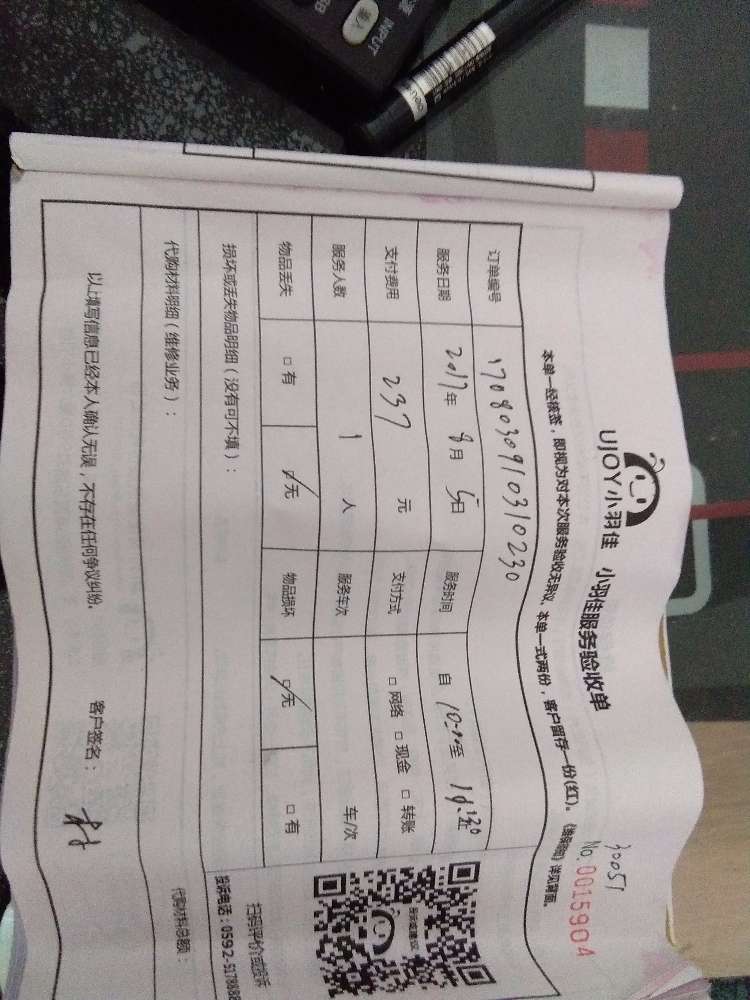 INPUT
UJOY小羽佳 小羽佳服务验收单
30051
No.0015904
本单一经核签，即视为对本次服务验收无异议。本单一式两份，客户留存一份(红)。 详见背面。
订单编号 1708030910310230
服务日期 2017年 8月 5日 服务时间 自 10:00至
支付费用 237 元 支付方式 □网络 □现金 □转账
服务人数 1 人 服务车次 车/次
物品丢失 □有 □无 物品损坏 □无 □有
损坏或丢失物品明细（没有可不填）：
扫码评价或投诉
投诉电话：0592-5178888
代购材料明细（维修业务）： 代购材料总额：
以上填写信息已经本人确认无误，不存在任何争议纠纷。 客户签名：